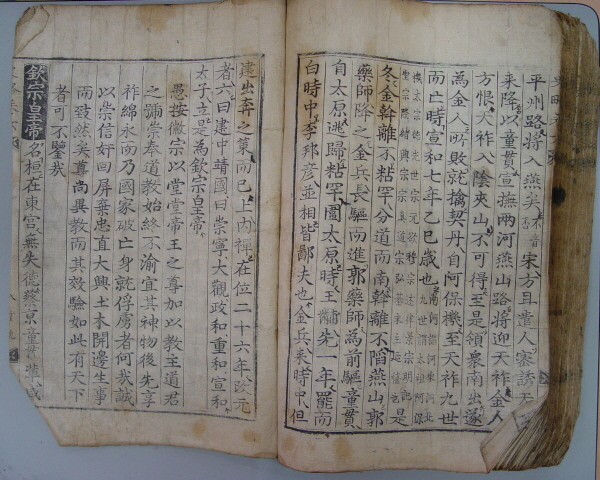 平州路將入燕矣宋方且遣人審誘天
來降以童貫宣撫兩河燕山路將迎天祚金人
方恨天祚入陰夾山不可得至是領衆南出遂
爲金人所敗就擒契丹自阿保機至天祚九世
而亡時宣和七年乙巳歲也
是
冬金幹離不粘罕分道而南幹離不陷燕山郭
藥師降之金兵長驅而進郭藥師爲前驅童貫
自太原逃歸粘罕圍太原時王黼先一年罷而
白時中李邦彦並相皆鄙夫也金兵來時中但
建出奔之策而已上内禪在位二十六年改元
者六曰建中靖國曰崇寧大觀政和重和宣和
太子立是爲欽宗皇帝
愚按徽宗以堂堂帝王之尊加以教主道君
之號崇奉道教始終不渝宜其神物後先享
祚綿永而乃國家破亡身就俘虜者何哉誠
以崇信奸回屏棄忠直大興土木開邊生事
而致然矣尊尚異教而其效驗如此有天下
者可不鑒哉
欽宗皇帝名桓在東宮無失德